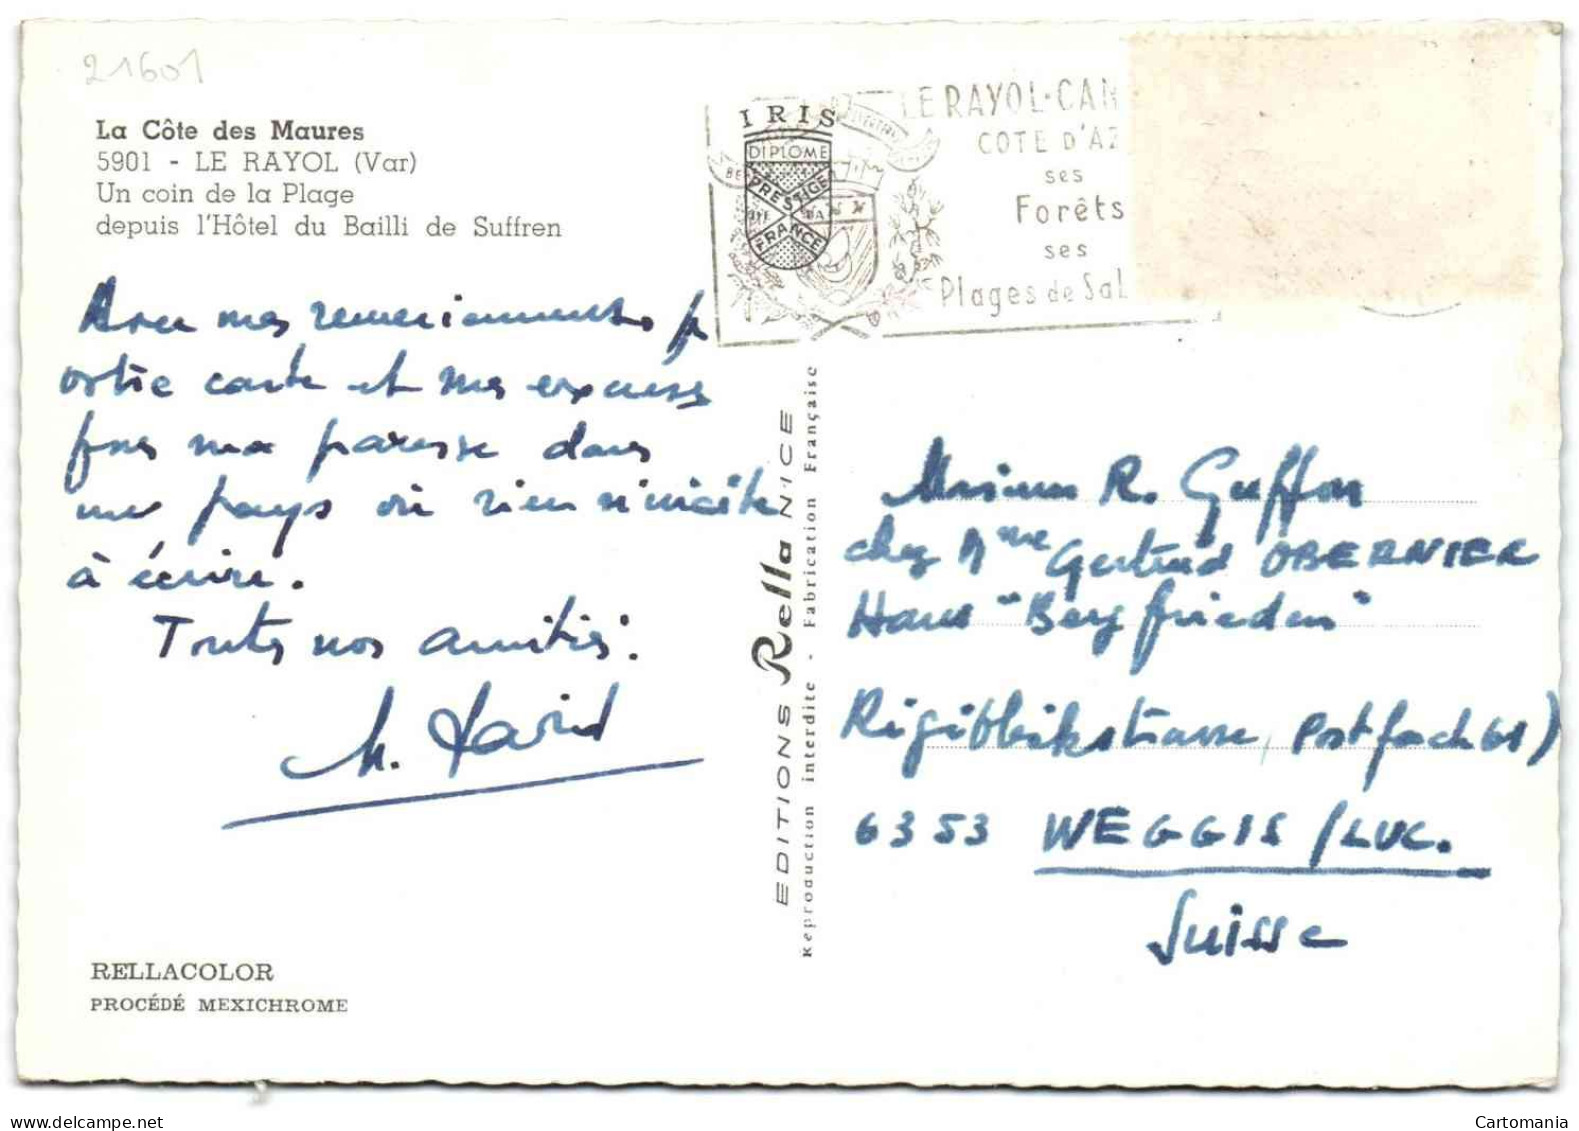 21601
La Côte des Maures
5901 - LE RAYOL (Var)
Un coin de la Plage
depuis l'Hôtel du Bailli de Suffren
IRIS
DIPLOME
PRESTIGE
DE LA
FRANCE
LE RAYOL-CAN
COTE D'AZ
ses
Forêts
ses
Plages de Sab
Avec mes remerciements pr
votre carte et mes excuses
pour ma paresse dans
un pays où rien n'incite
à écrire.
Toutes nos amitiés.
M. David
RELLACOLOR
PROCÉDÉ MEXICHROME
EDITIONS Rella NICE
Reproduction interdite - Fabrication Française
Monsieur R. Guffon
chez Mme Gertrud OBERNIER
Haus "Bergfrieden"
Rigiblickstrasse, Postfach 61)
6353 WEGGIS /LUC.
Suisse
Cartomania